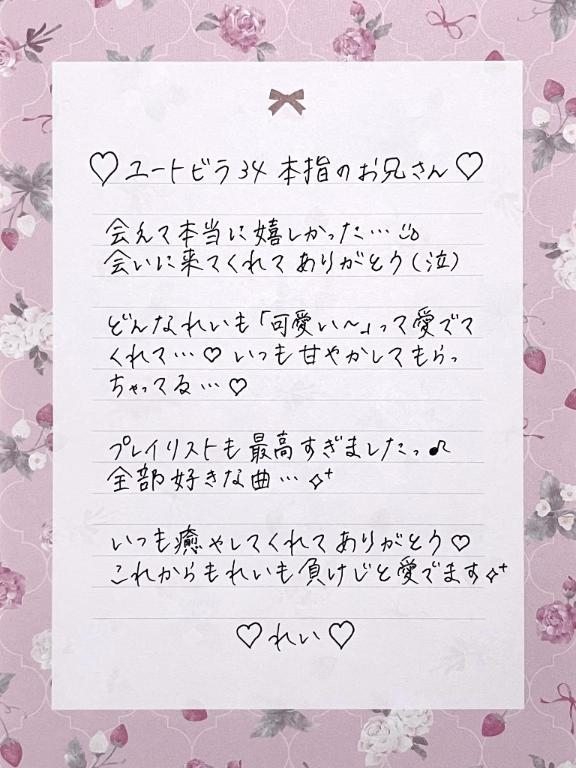 ♡ユートピラ34 本指のお兄さん♡
会えて本当に嬉しかった…
会いに来てくれてありがとう(泣)
どんなれいも「可愛い〜」って愛でて
くれて…♡いつも甘やかしてもらっ
ちゃってる…♡
プレイリストも最高すぎましたっ♪
全部好きな曲…✧⁺
いつも癒やしてくれてありがとう♡
これからもれいも負けじと愛でます✧⁺
♡れい♡